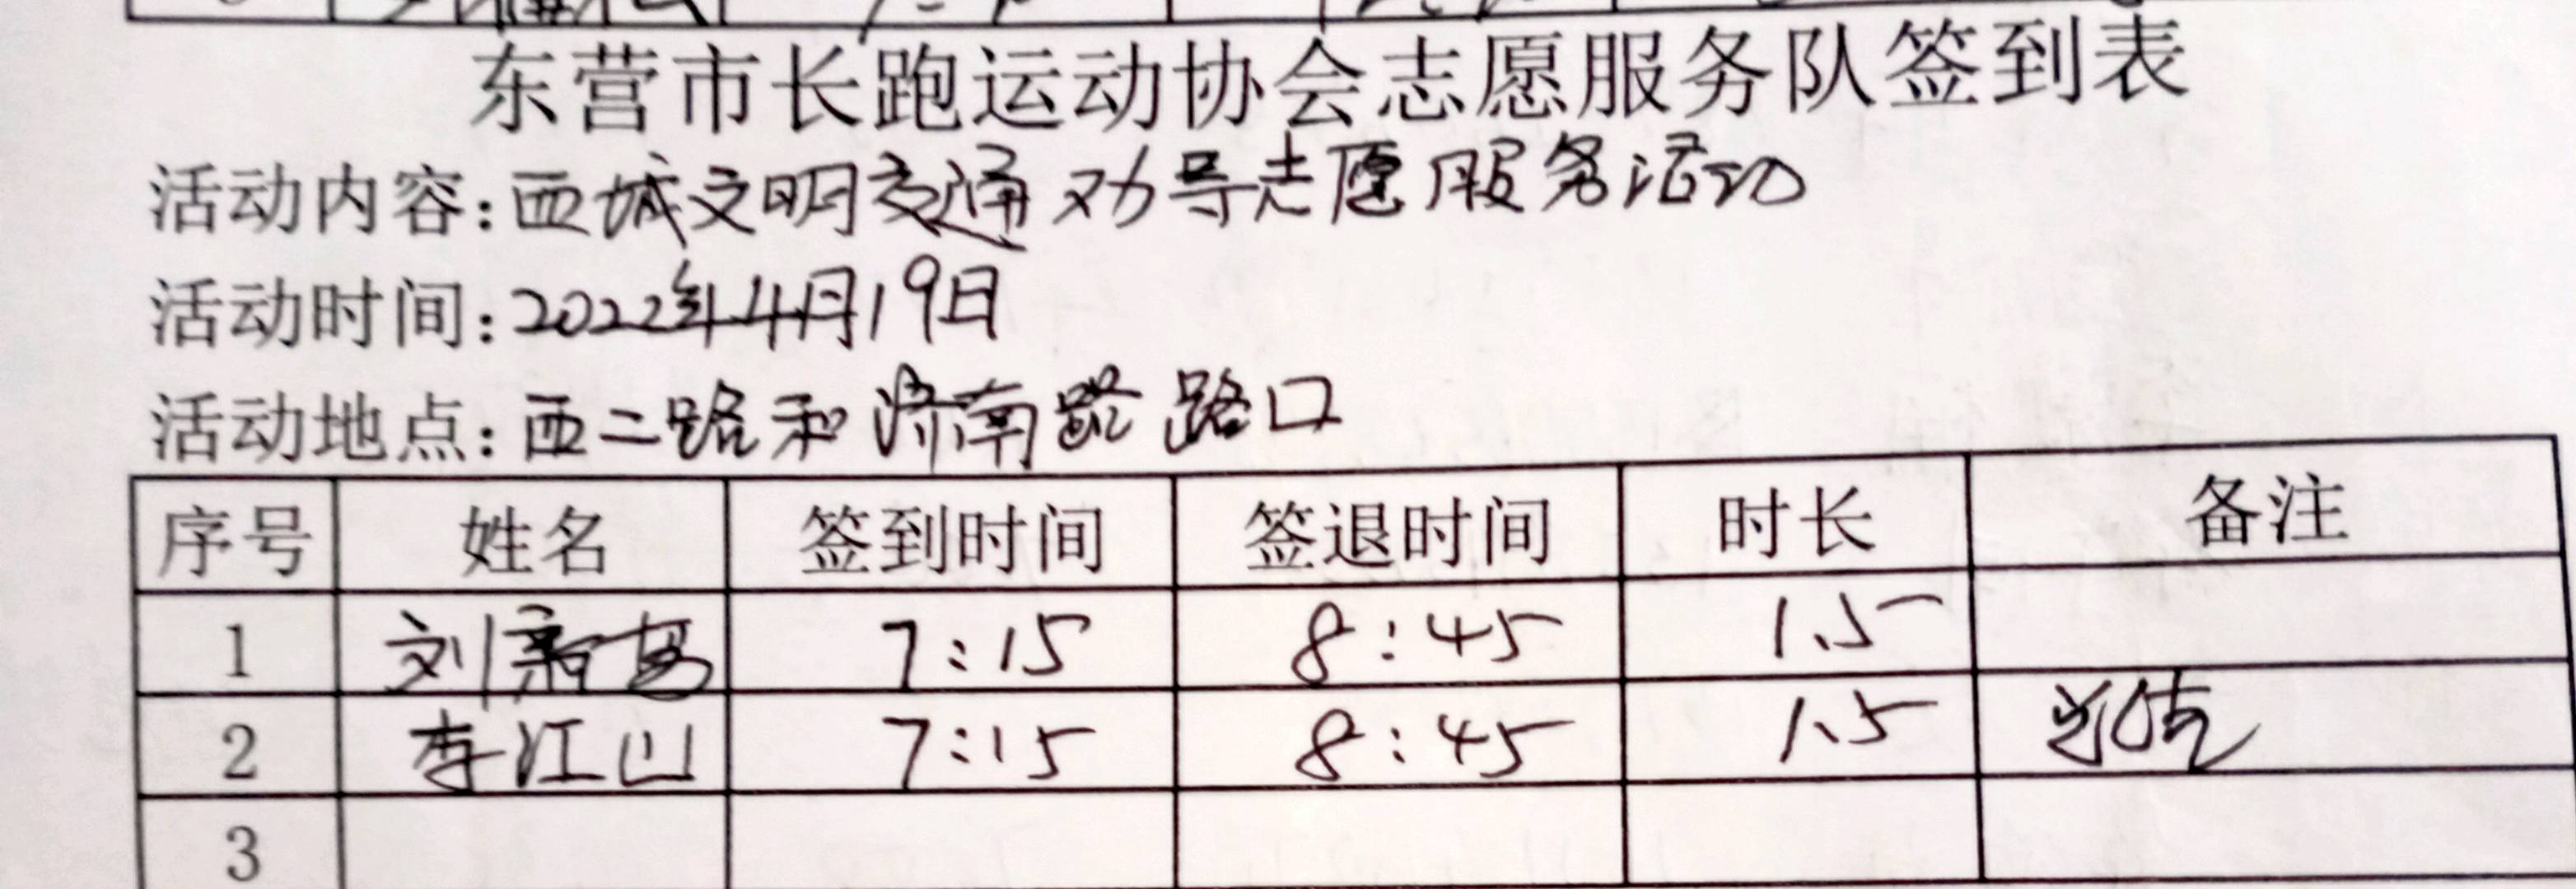 东营市长跑运动协会志愿服务队签到表
活动内容:西城文明交通劝导志愿服务活动
活动时间:2022年4月19日
活动地点:西二路和济南路路口
序号 姓名 签到时间 签退时间 时长 备注
1 刘新 7:15 8:45 1.5
2 李江山 7:15 8:45 1.5
3